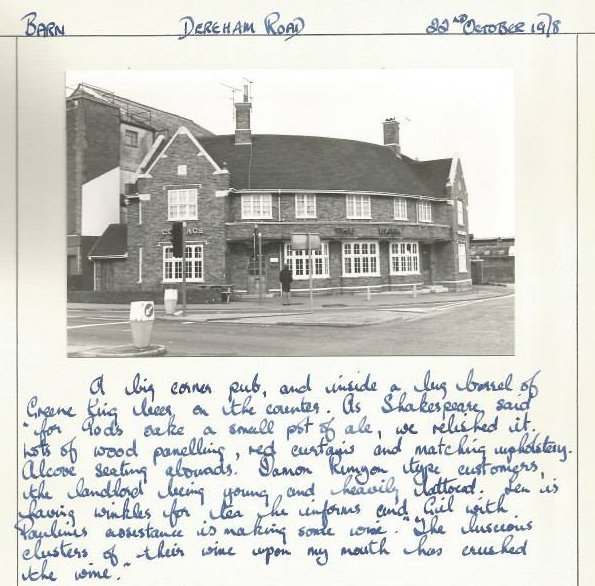 BARN DEREHAM ROAD 22ND OCTOBER 1978
COURAGE
A big corner pub, and inside a big barrel of
Greene King beer, on the counter. As Shakespeare said
"for God's sake a small pot of ale, we relished it.
Lots of wood panelling, red curtains and matching upholstery.
Alcove seating abounds. Damon Runyon type customers,
the landlord being young and heavily tattooed. Len is
having winkles for tea he informs and Gill with
Pauline's assistance is making some wine. "The luscious
clusters of their wine upon my mouth has crushed
the wine."